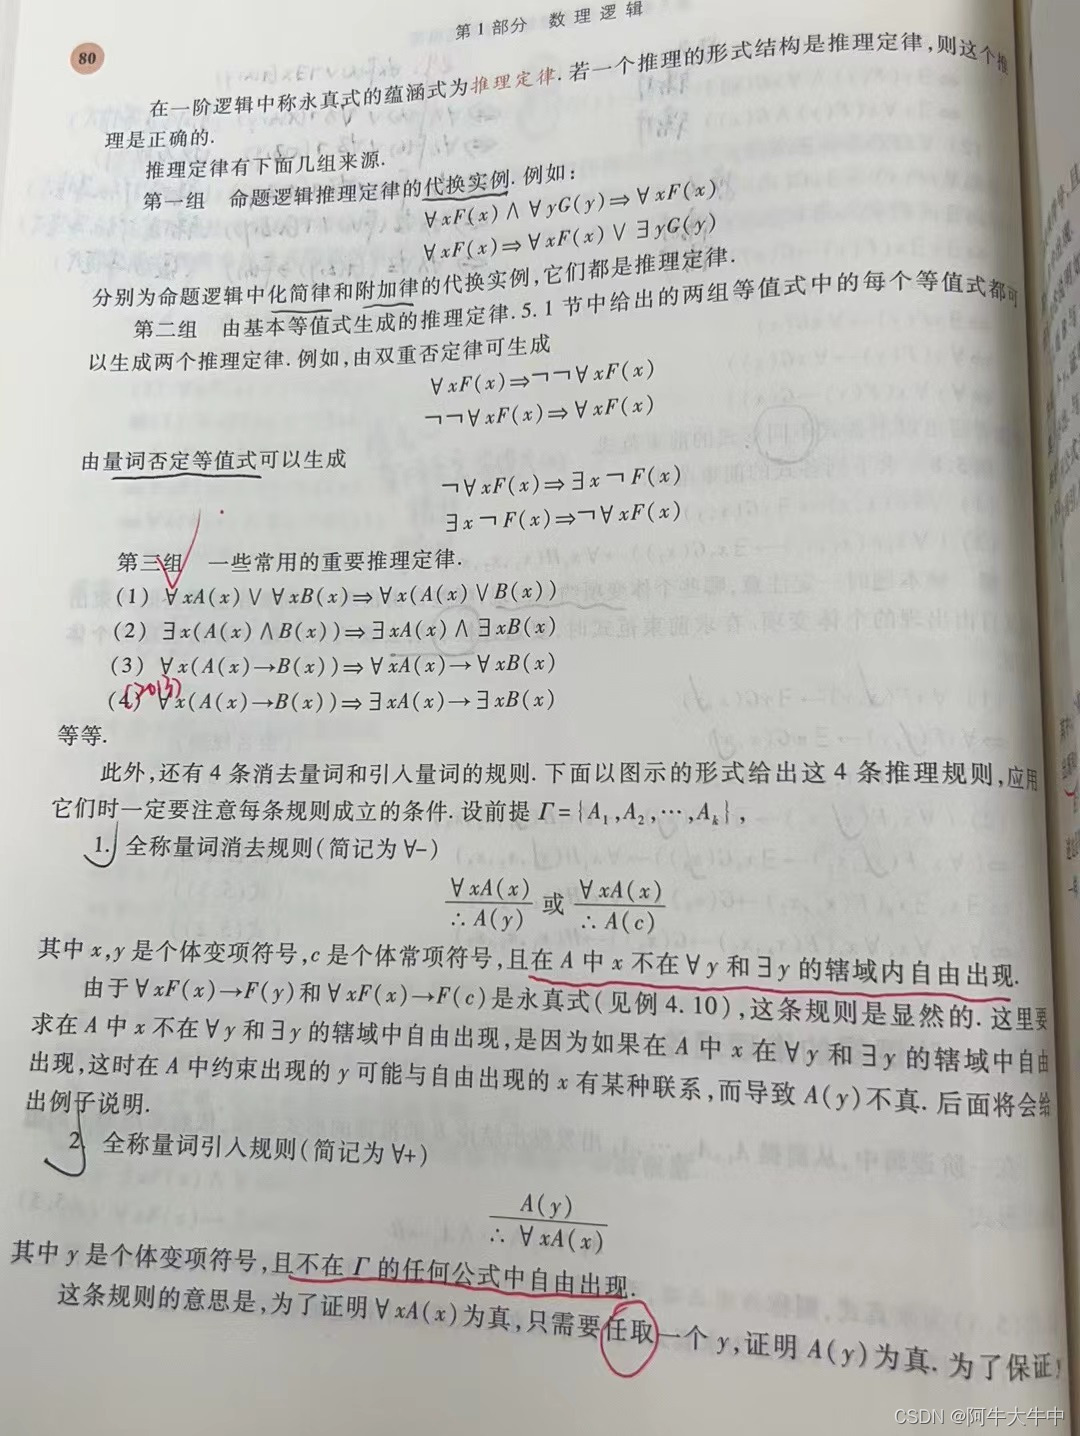 第1部分 数理逻辑
80
在一阶逻辑中称永真式的蕴涵式为推理定律.若一个推理的形式结构是推理定律,则这个推
理是正确的.
推理定律有下面几组来源.
第一组 命题逻辑推理定律的代换实例.例如:
∀xF(x)∧∀yG(y)⇒∀xF(x)
∀xF(x)⇒∀xF(x)∨∃yG(y)
分别为命题逻辑中化简律和附加律的代换实例,它们都是推理定律.
第二组 由基本等值式生成的推理定律.5.1节中给出的两组等值式中的每个等值式都可
以生成两个推理定律.例如,由双重否定律可生成
∀xF(x)⇒¬¬∀xF(x)
¬¬∀xF(x)⇒∀xF(x)
由量词否定等值式可以生成
¬∀xF(x)⇒∃x¬F(x)
∃x¬F(x)⇒¬∀xF(x)
第三组 一些常用的重要推理定律.
(1) ∀xA(x)∨∀xB(x)⇒∀x(A(x)∨B(x))
(2) ∃x(A(x)∧B(x))⇒∃xA(x)∧∃xB(x)
(3) ∀x(A(x)→B(x))⇒∀xA(x)→∀xB(x)
(2013)
(4) ∀x(A(x)→B(x))⇒∃xA(x)→∃xB(x)
等等.
此外,还有4条消去量词和引入量词的规则.下面以图示的形式给出这4条推理规则,应用
它们时一定要注意每条规则成立的条件.设前提Γ={A₁,A₂,…,Aₖ},
1. 全称量词消去规则(简记为∀-)
∀xA(x) 或 ∀xA(x)
∴A(y) ∴A(c)
其中x,y是个体变项符号,c是个体常项符号,且在A中x不在∀y和∃y的辖域内自由出现.
由于∀xF(x)→F(y)和∀xF(x)→F(c)是永真式(见例4.10),这条规则是显然的.这里要
求在A中x不在∀y和∃y的辖域中自由出现,是因为如果在A中x在∀y和∃y的辖域中自由
出现,这时在A中约束出现的y可能与自由出现的x有某种联系,而导致A(y)不真.后面将会给
出例子说明.
2. 全称量词引入规则(简记为∀+)
A(y)
∴∀xA(x)
其中y是个体变项符号,且不在Γ的任何公式中自由出现.
这条规则的意思是,为了证明∀xA(x)为真,只需要任取一个y,证明A(y)为真.为了保证y
CSDN @阿牛大牛中